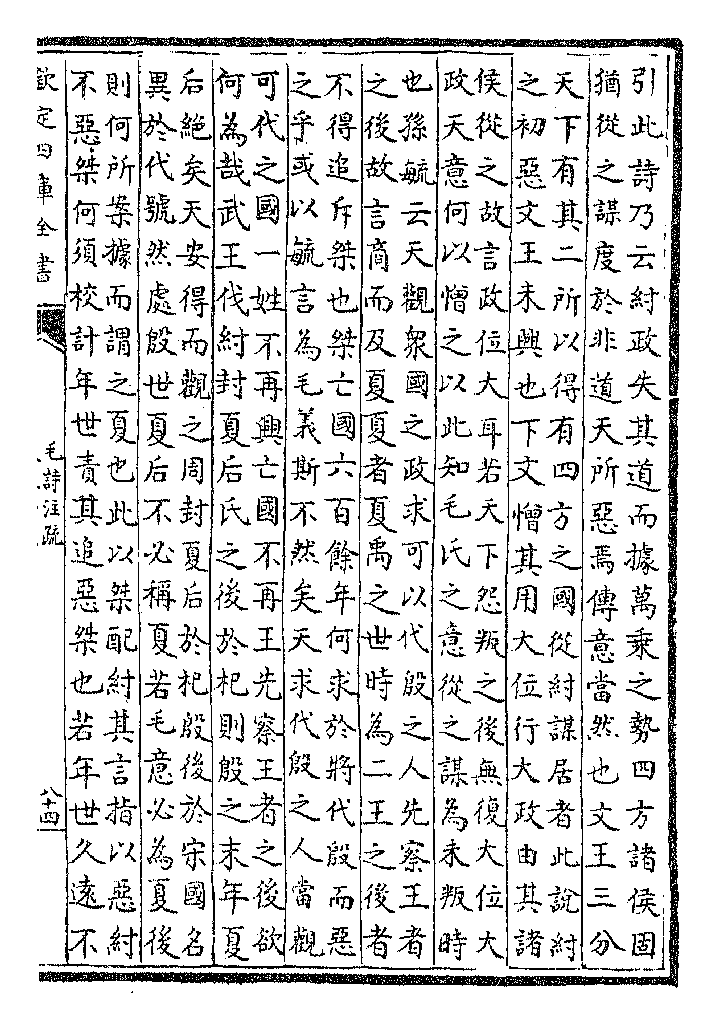 引此詩乃云紂政失其道而據萬乘之勢四方諸侯固
猶從之謀度於非道天所惡焉傳意當然也文王三分
天下有其二所以得有四方之國從紂謀居者此說紂
之初惡文王未興也下文憎其用大位行大政由其諸
侯從之故言政位大耳若天下怨叛之後無復大位大
政天意何以憎之以此知毛氏之意從之謀為未叛時
也孫毓云天觀衆國之政求可以代殷之人先察王者
之後故言商而及夏夏者夏禹之世時為二王之後者
不得追斥桀也桀亡國六百餘年何求於將代殷而惡
之乎或以毓言為毛義斯不然矣天求代殷之人當觀
可代之國一姓不再興亡國不再王先察王者之後欲
何為哉武王伐紂封夏后氏之後於杞則殷之末年夏
后絕矣天安得而觀之周封夏后於杞殷後於宋國名
異於代號然處殷世夏后不必稱夏若毛意必為夏後
則何所案據而謂之夏也此以桀配紂其言指以惡紂
不惡桀何須校計年世責其追惡桀也若年世久遠不
欽定四庫全書
毛詩注疏
八十四